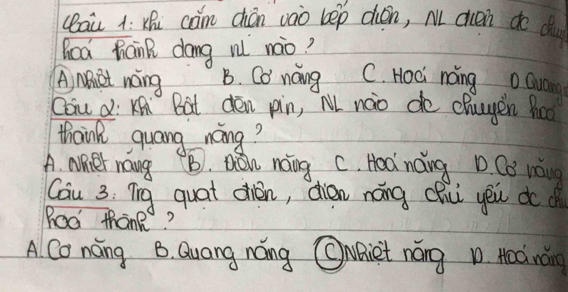 Câu 1: Khi cắm điện vào bếp điện, NL điện đc chuyể
hoá thành dạng nl nào?
A) Nhiệt năng B. Cơ năng C. Hoá năng D. Quang
Câu 2: Khi bật đèn pin, NL nào đc chuyển hoá
thành quang năng?
A. Nhiệt năng B. Điện năng C. Hoá năng D. Cơ năng
Câu 3: Trg quạt điện, điện năng chủ yếu đc ch
hoá thành?
A. Cơ năng B. Quang năng C) Nhiệt năng D. Hoá năng